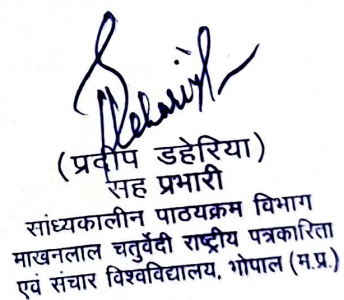 (प्रदीप डहेरिया)
सह प्रभारी
सांध्यकालीन पाठयक्रम विभाग
माखनलाल चतुर्वेदी राष्ट्रीय पत्रकारिता
एवं संचार विश्वविद्यालय, भोपाल (म.प्र.)